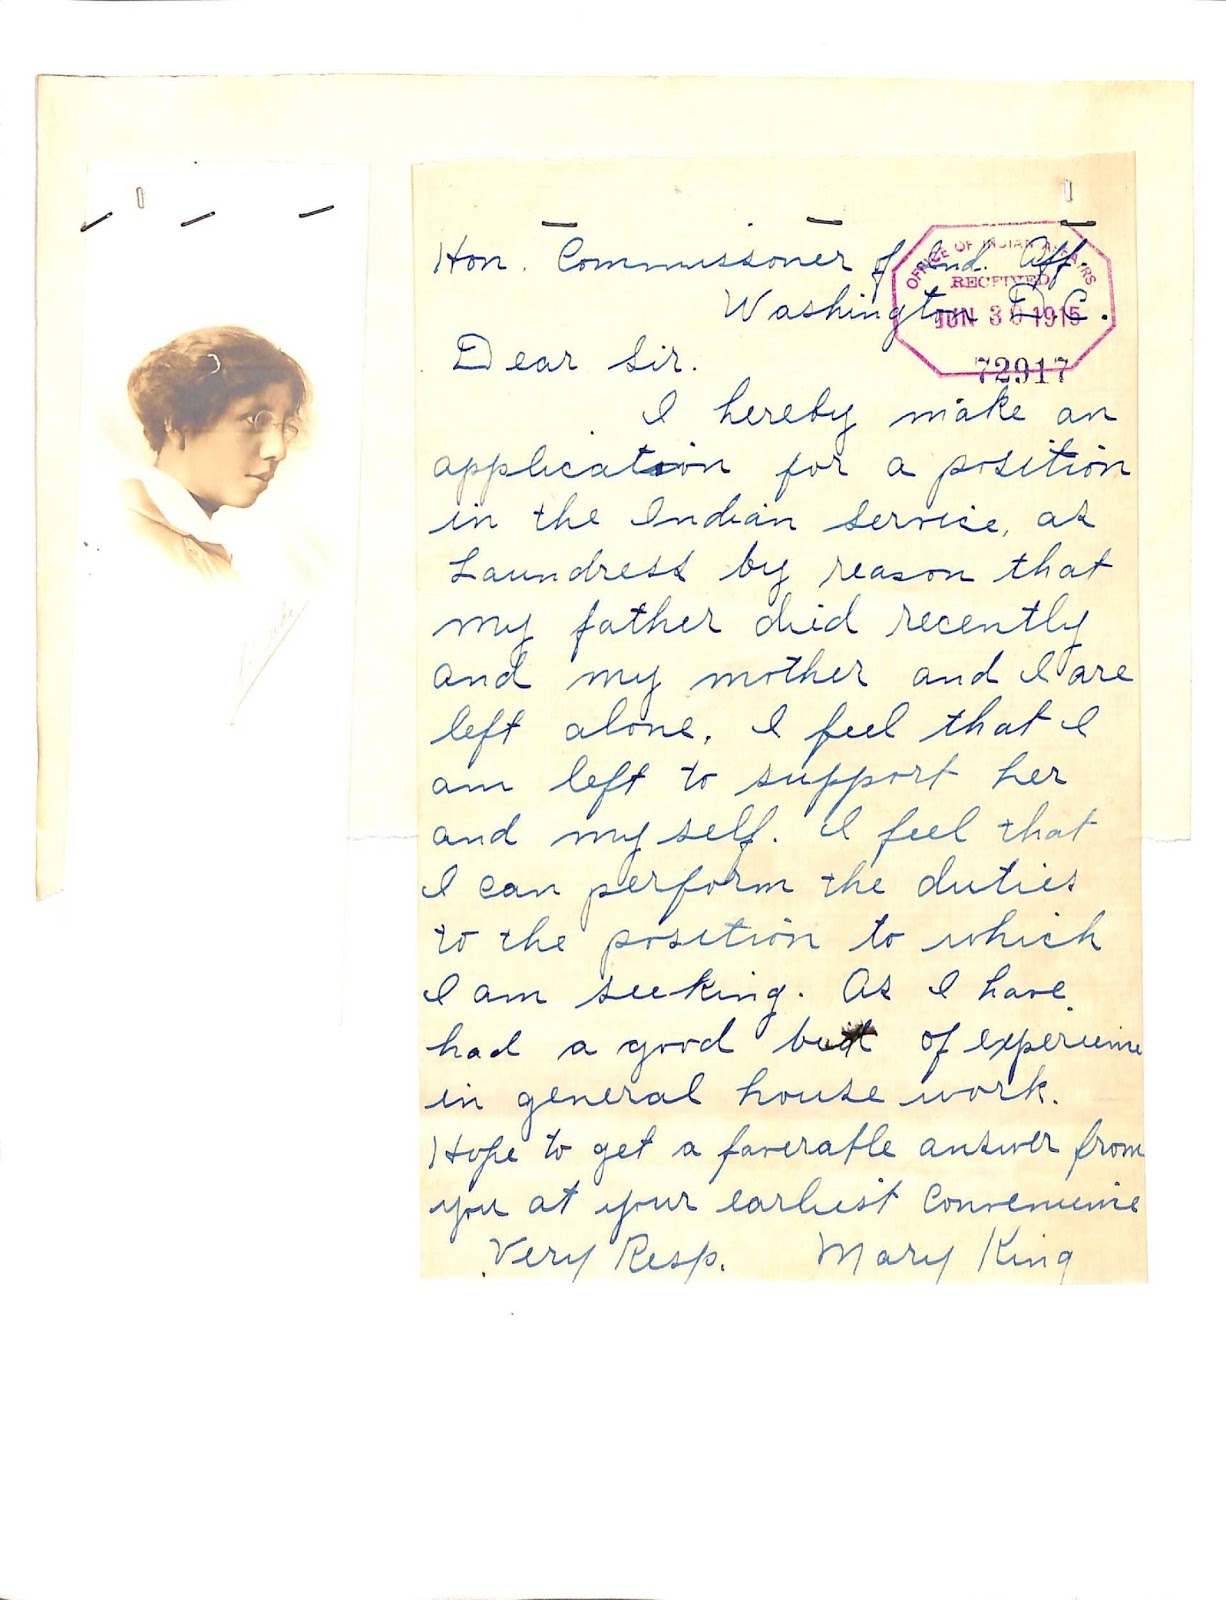 Hon. Commissoner of Ind. Aff.
Washington D.C.
OFFICE OF INDIAN AFFAIRS
RECEIVED
JUN 30 1915
72917
Dear Sir.
I hereby make an
application for a position
in the Indian Service, as
Laundress by reason that
my father died recently
and my mother and I are
left alone. I feel that I
am left to support her
and my self. I feel that
I can perform the duties
to the position to which
I am seeking. As I have
had a good bit of experience
in general house work.
Hope to get a faverable answer from
you at your earliest convenience
Very Resp. Mary King